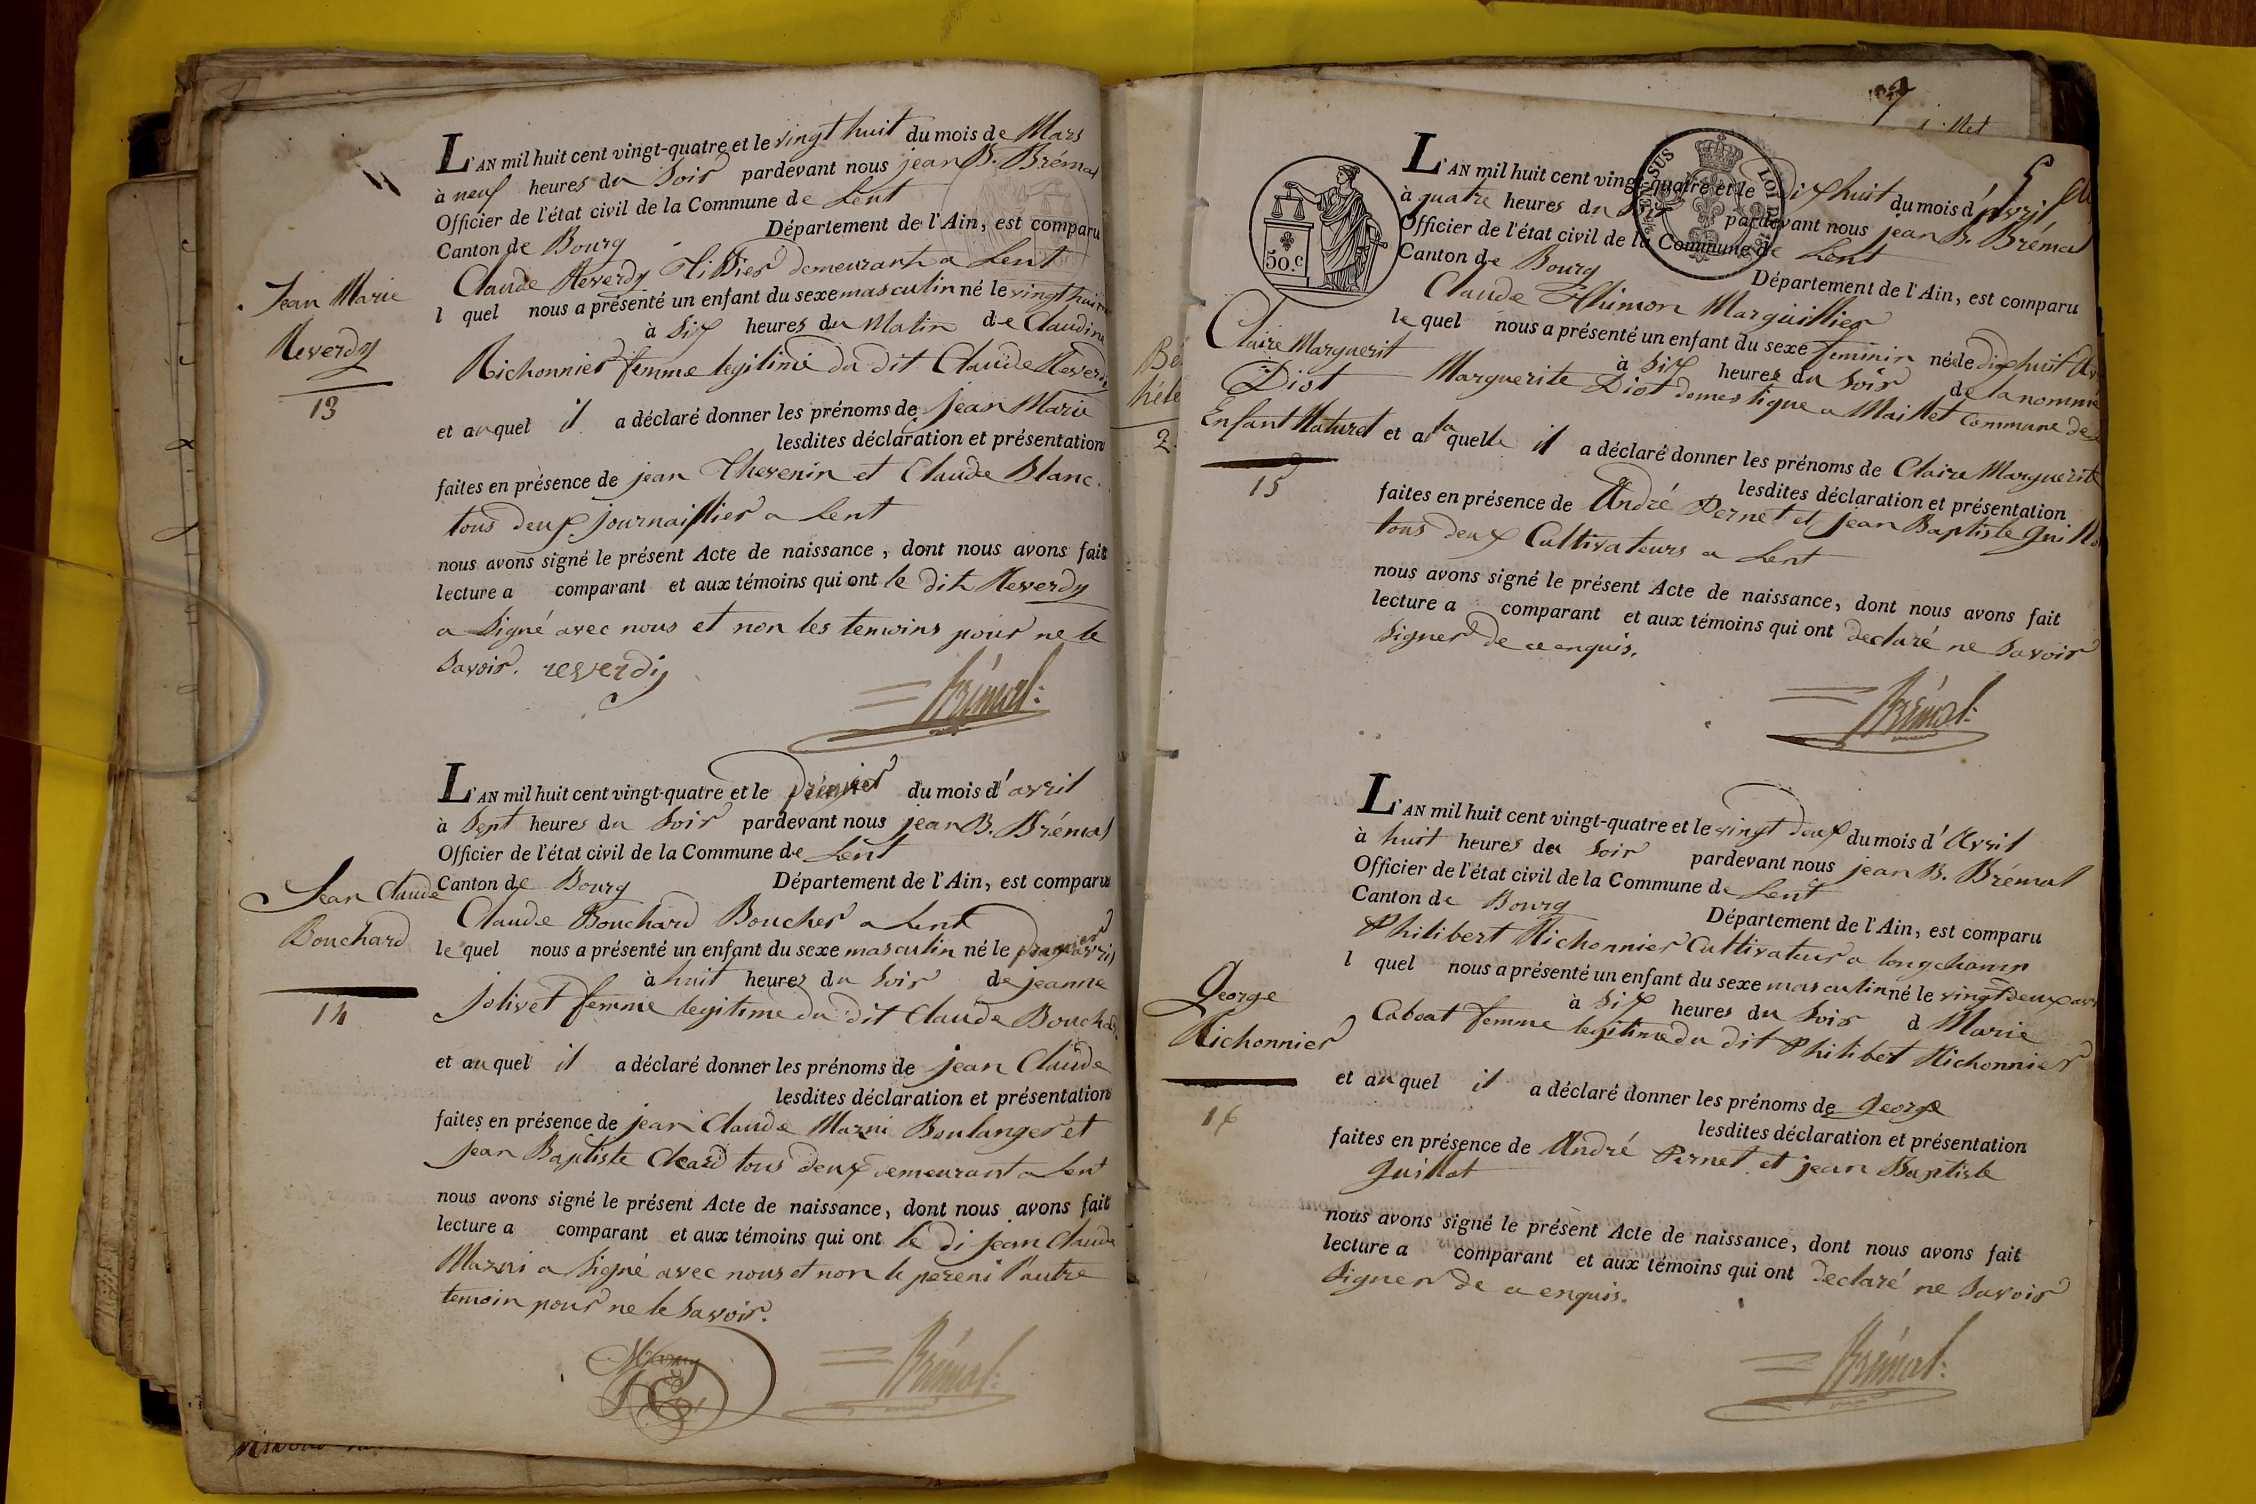 L'AN mil huit cent vingt-quatre et le vingt huit du mois de Mars
à neuf heures du Soir pardevant nous jean B. Brémal
Officier de l'état civil de la Commune de Lent
Canton de Bourg Département de l'Ain, est comparu
Claude Reverdy Tissier demeurant a Lent
l quel nous a présenté un enfant du sexe masculin né le vingt huit
à Six heures du Matin de Claudine
Richonnier femme legitime du dit Claude Reverdy
et auquel il a déclaré donner les prénoms de jean Marie
lesdites déclaration et présentation
faites en présence de jean Thevenin et Claude Blanc.
tous deux journaillier a Lent
nous avons signé le présent Acte de naissance, dont nous avons fait
lecture a comparant et aux témoins qui ont le dit Reverdy
a Signé avec nous et non les temoins pour ne le
Savoir. reverdy
Brémal
Jean Marie
Reverdy
13
L'AN mil huit cent vingt-quatre et le Premier du mois d'avril
à Sept heures du Soir pardevant nous jean B. Brémal
Officier de l'état civil de la Commune de Lent
Canton de Bourg Département de l'Ain, est comparu
Claude Bouchard Boucher a Lent
le quel nous a présenté un enfant du sexe masculin né le premier avril
à huit heures du Soir de jeanne
Jolivet femme legitime du dit Claude Bouchard
et auquel il a déclaré donner les prénoms de jean Claude
lesdites déclaration et présentation
faites en présence de jean Claude Marni Boulanger et
jean Baptiste Cleard tous deux demeurant a Lent
nous avons signé le présent Acte de naissance, dont nous avons fait
lecture a comparant et aux témoins qui ont le di jean Claude
Marni a Signé avec nous et non le pere ni l'autre
temoin pour ne le Savoir.
Marny
Brémal
Jean Claude
Bouchard
14
5
L'AN mil huit cent vingt-quatre et le Dix huit du mois d'Avril
à quatre heures du pardevant nous jean B. Brémal
Officier de l'état civil de la Commune de Lent
Canton de Bourg Département de l'Ain, est comparu
50.c
Claude Thimon Marguillier
le quel nous a présenté un enfant du sexe feminin né le dix huit
à Six heures du Soir de la nommé
Marguerite Diot domestique a Maillet Commune de
et a la quelle il a déclaré donner les prénoms de Claire Marguerite
lesdites déclaration et présentation
faites en présence de André Pernet et jean Baptiste Guillot
tous deux Cultivateurs a Lent
nous avons signé le présent Acte de naissance, dont nous avons fait
lecture a comparant et aux témoins qui ont declaré ne Savoir
Signer de ce enquis.
Brémal
Claire Marguerit
Diot
Enfant Naturel
15
L'AN mil huit cent vingt-quatre et le vingt deux du mois d'Avril
à huit heures du Soir pardevant nous jean B. Brémal
Officier de l'état civil de la Commune de Lent
Canton de Bourg Département de l'Ain, est comparu
Philibert Richonnier Cultivateur a longchamp
l quel nous a présenté un enfant du sexe masculin né le vingt deux
à Six heures du Soir d Marie
Caboat femme legitime du dit Philibert Richonnier
et auquel il a déclaré donner les prénoms de George
lesdites déclaration et présentation
faites en présence de André Pernet et jean Baptiste
Guillot
nous avons signé le présent Acte de naissance, dont nous avons fait
lecture a comparant et aux témoins qui ont declaré ne Savoir
Signer de ce enquis.
Brémal
George
Richonnier
16